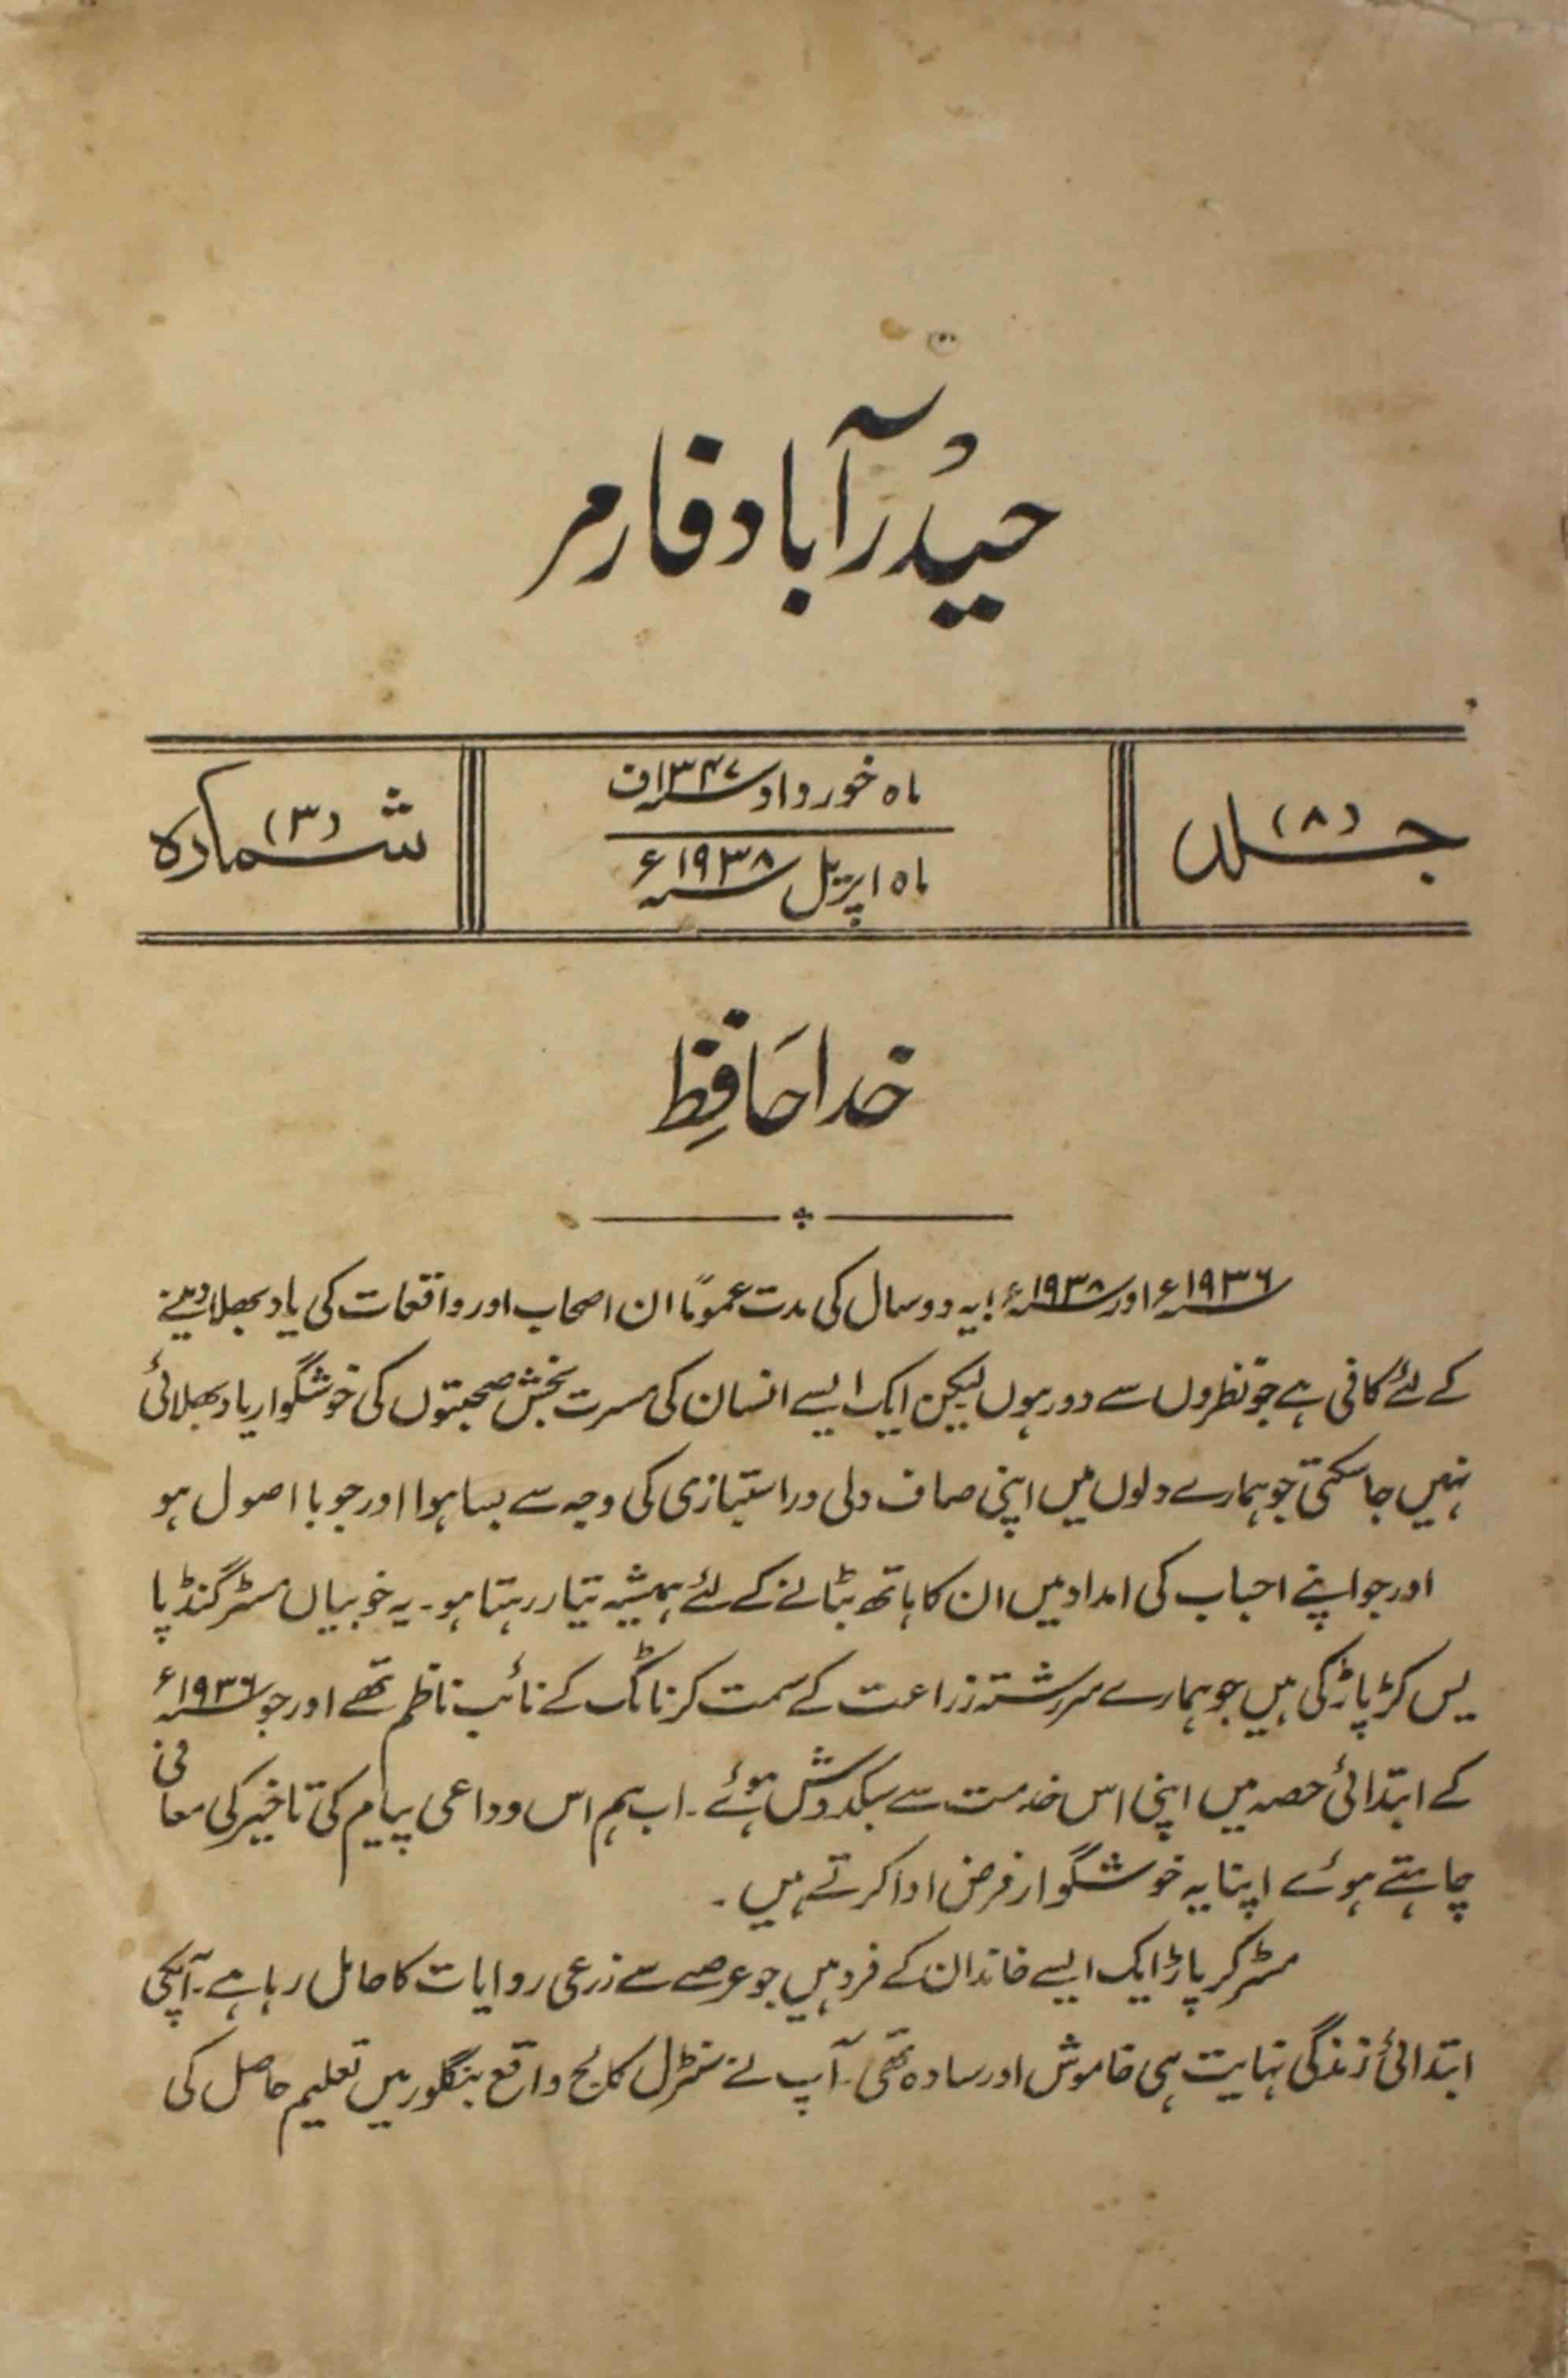 حیدرآباد فارمر
جلد (۸)
ماہ خورداد سنہ ۱۳۴۷ف
ماہ اپریل سنہ ۱۹۳۸ء
شمارہ (۳)
خدا حافظ
سنہ ۱۹۳۶ء اور سنہ ۱۹۳۸ء! یہ دو سال کی مدت عموماً ان اصحاب اور واقعات کی یاد بھلا دینے
کے لئے کافی ہے جو نظروں سے دور ہوں لیکن ایک ایسے انسان کی مسرت بخش صحبتوں کی خوشگوار یاد بھلائی
نہیں جا سکتی جو ہمارے دلوں میں اپنی صاف دلی و راستبازی کی وجہ سے بسا ہوا اور جو با اصول ہو
اور جو اپنے احباب کی امداد میں ان کا ہاتھ بٹانے کے لئے ہمیشہ تیار رہتا ہو۔ یہ خوبیاں مسٹر گنڈپا
یس کڑپاڑ کی ہیں جو ہمارے سررشتہ زراعت کے سمت کرناٹک کے نائب ناظم تھے اور جو سنہ ۱۹۳۶ء
کے ابتدائی حصہ میں اپنی اس خدمت سے سبکدوش ہوئے۔ اب ہم اس وداعی پیام کی تاخیر کی معافی
چاہتے ہوئے اپنا یہ خوشگوار فرض ادا کرتے ہیں۔
مسٹر کرپاڑ ایک ایسے خاندان کے فرد ہیں جو عرصے سے زرعی روایات کا حامل رہا ہے۔ آپکی
ابتدائی زندگی نہایت ہی خاموش اور سادہ تھی۔ آپ نے سنٹرل کالج واقع بنگلور میں تعلیم حاصل کی